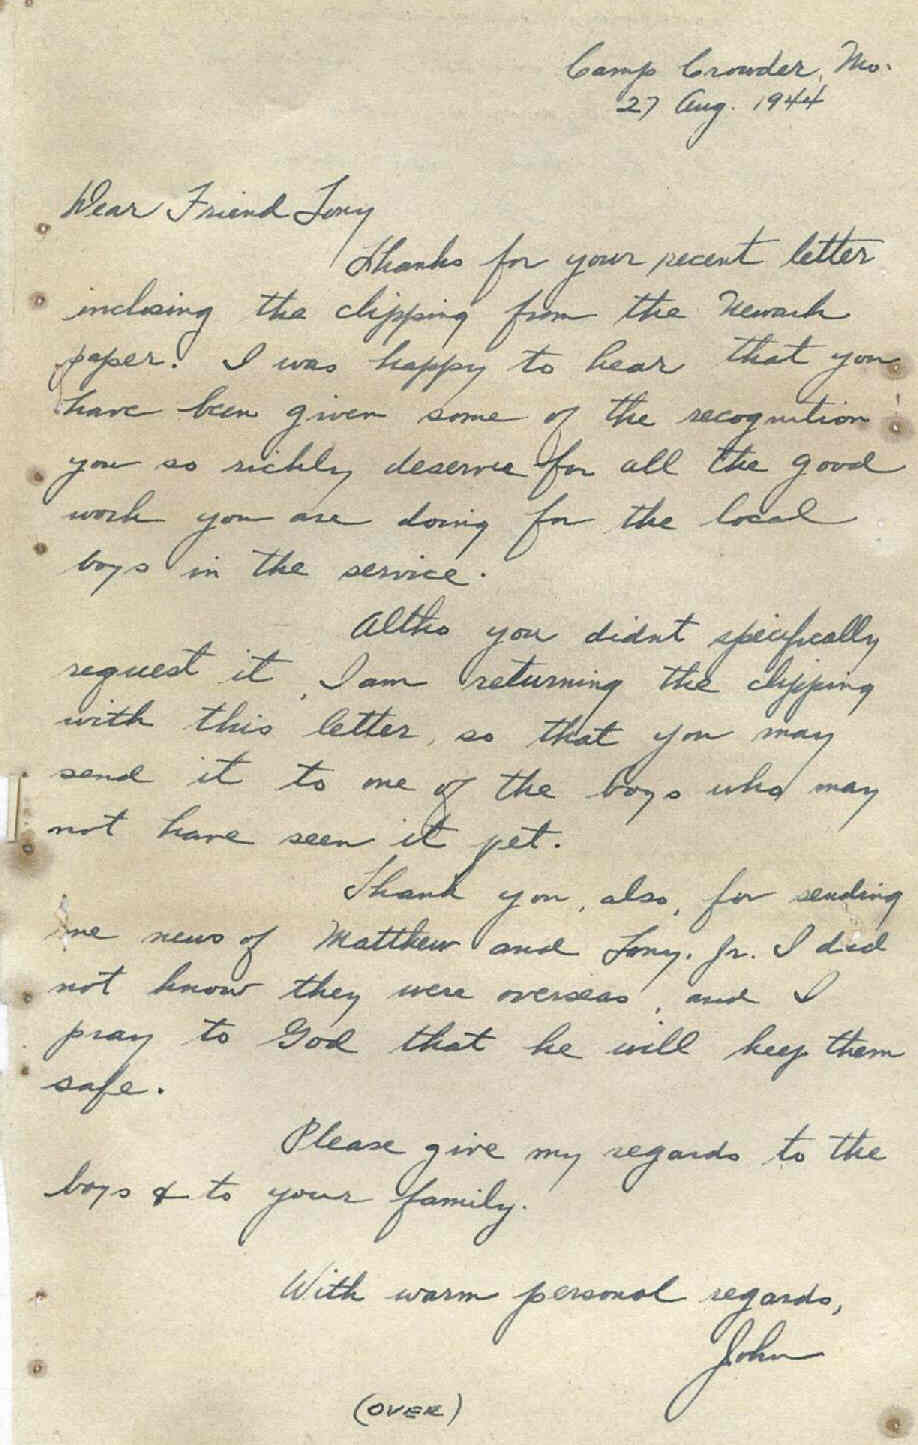 Camp Crowder, Mo.
27 Aug. 1944
Dear Friend Tony
Thanks for your recent letter
inclosing the clipping from the Newark
paper. I was happy to hear that you
have been given some of the recognition
you so richly deserve for all the good
work you are doing for the local
boys in the service.
Altho you didnt specifically
request it, I am returning the clipping
with this letter, so that you may
send it to one of the boys who may
not have seen it yet.
Thank you, also, for sending
me news of Matthew and Tony. Jr. I did
not know they were overseas, and I
pray to God that he will keep them
safe.
Please give my regards to the
boys & to your family.
With warm personal regards,
John
(OVER)